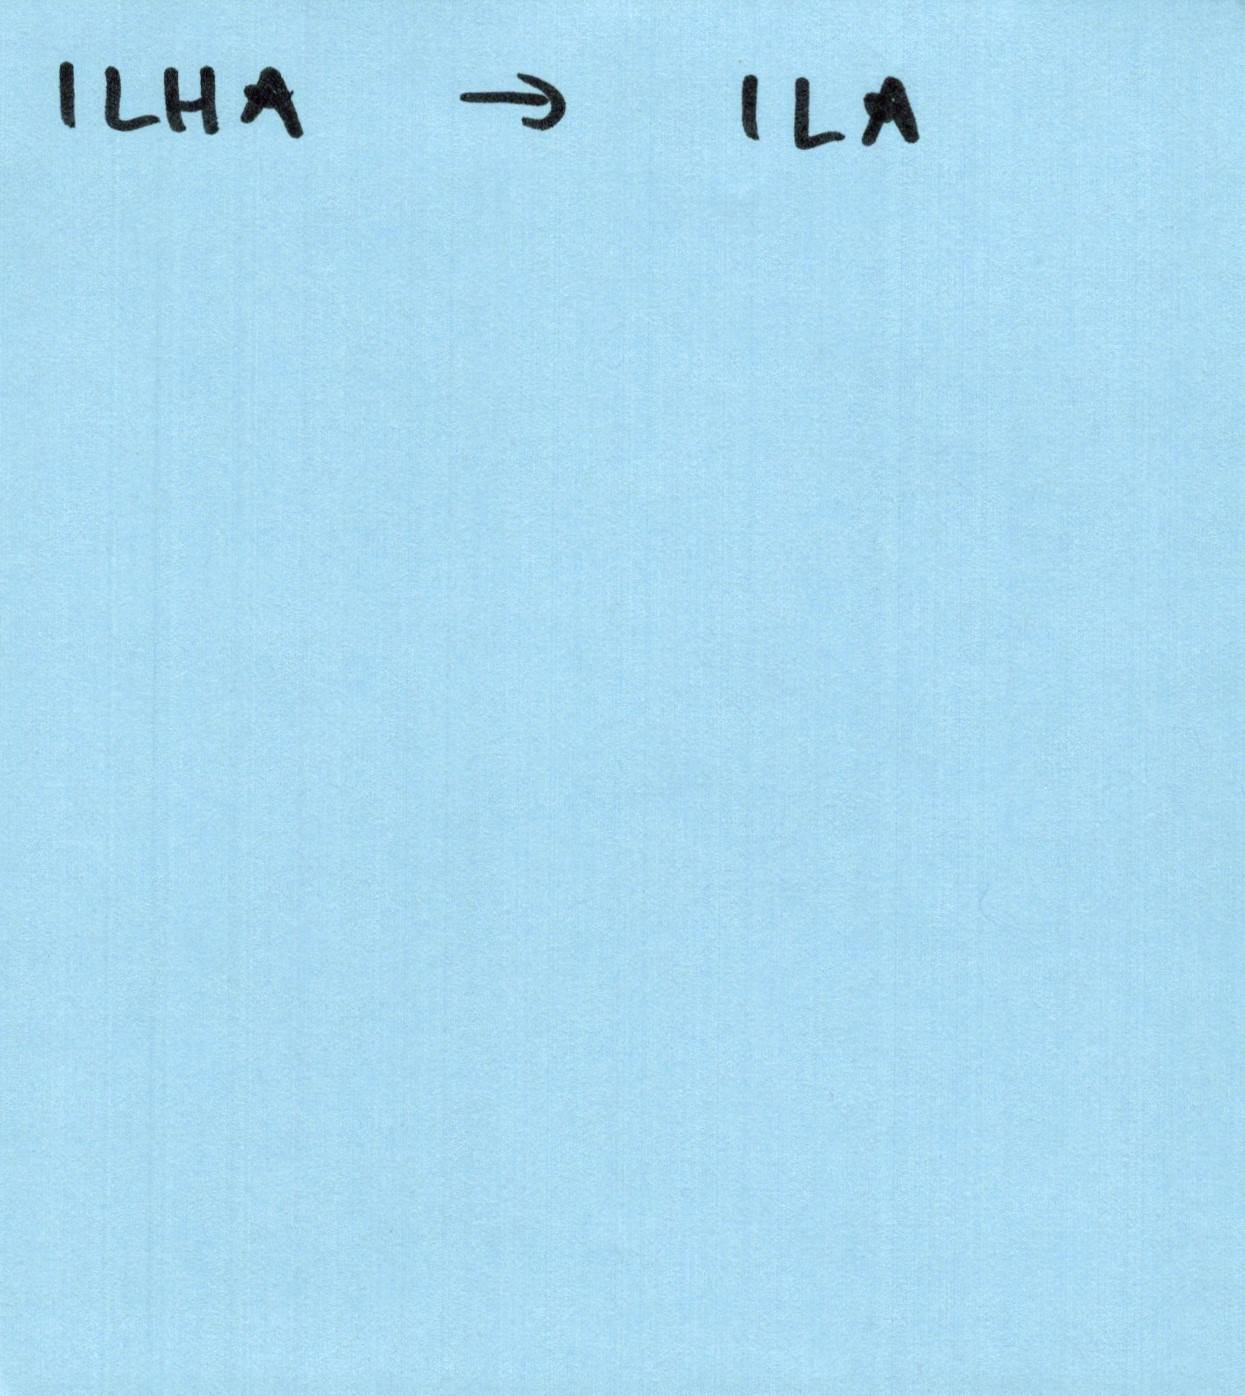 ILHA → ILA